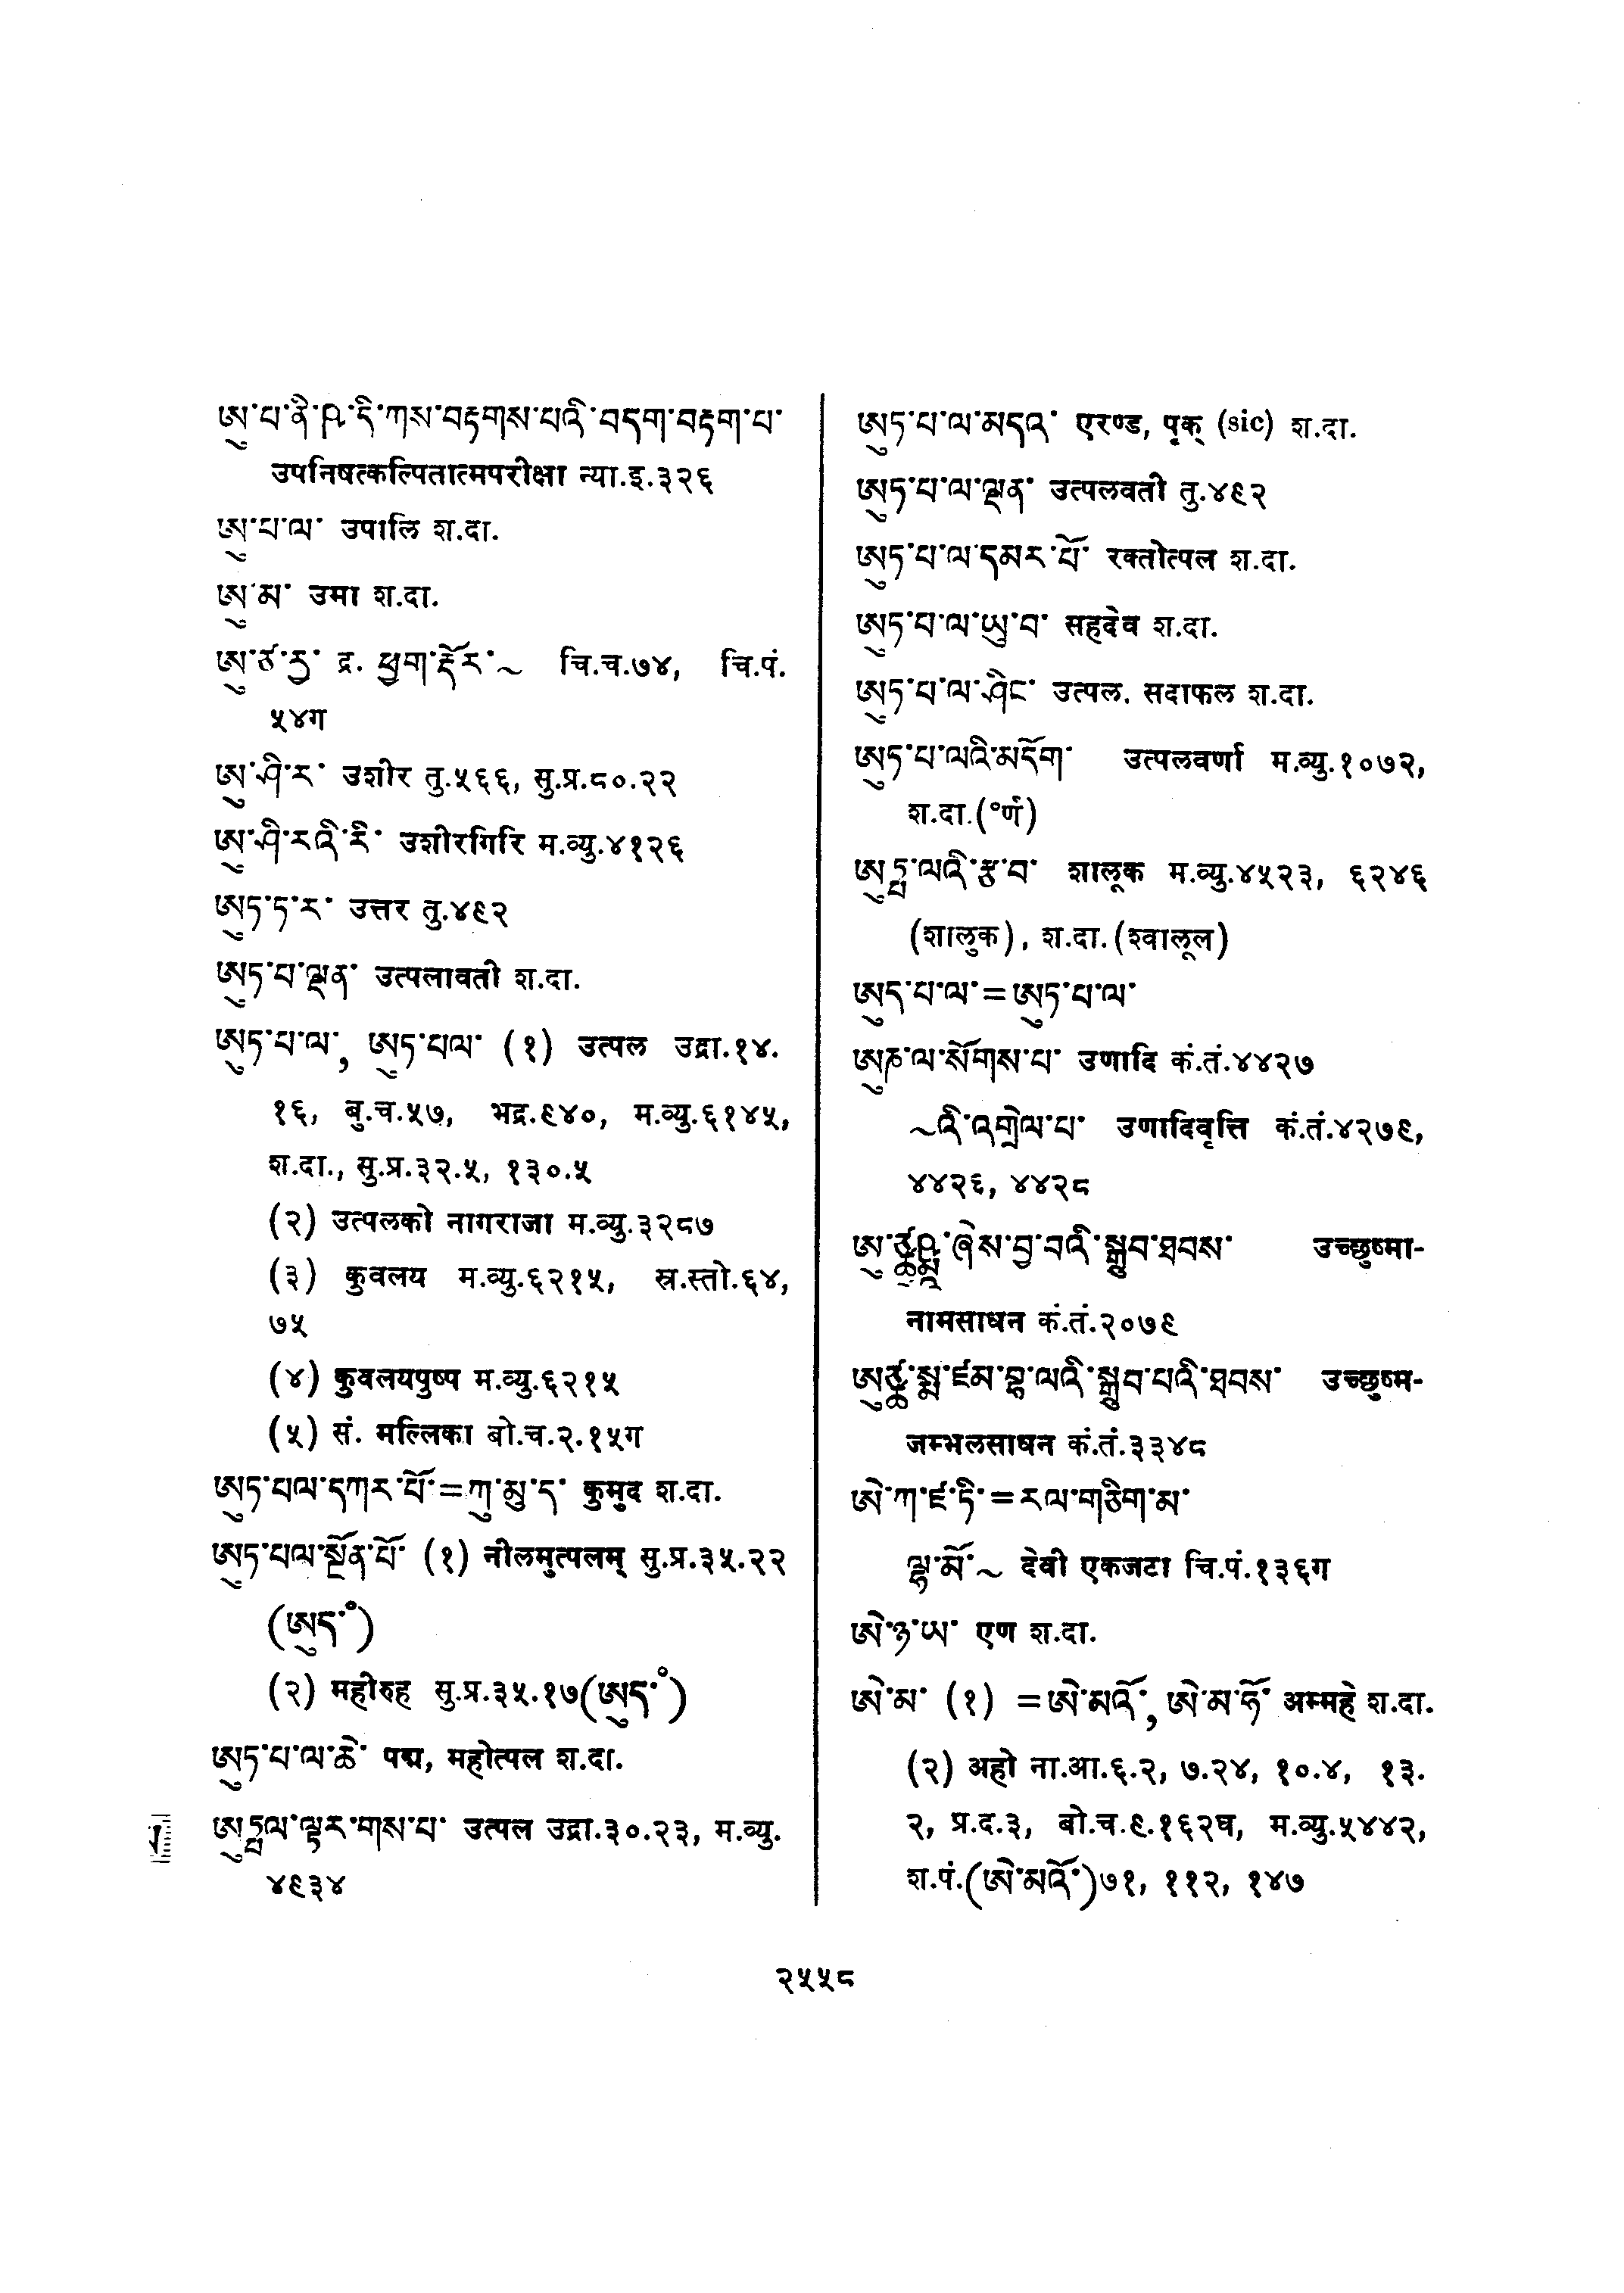 ཨུ་པ་ནི་ཥ་དི་ཀས་བརྟགས་པའི་བདག་བརྟག་པ་
उपनिषत्कल्पितात्मपरीक्षा न्या.इ.३२६
ཨུ་པ་ལ་ उपालि श.दा.
ཨུ་མ་ उमा श.दा.
ཨུ་ཙ་རྱ་ द्र. ཕྱག་རྡོར་~ चि.च.७४, चि.पं.
५४ग
ཨུ་ཤི་ར་ उशीर तु.५६६, सु.प्र.८०.२२
ཨུ་ཤི་རའི་རི་ उशीरगिरि म.व्यु.४१२६
ཨུཏ་ཏ་ར་ उत्तर तु.४९२
ཨུཏ་པ་ལྡན་ उत्पलावती श.दा.
ཨུཏ་པ་ལ་, ཨུཏ་པལ་ (१) उत्पल उद्रा.१४.
१६, बु.च.५७, भद्र.९४०, म.व्यु.६१४५,
श.दा., सु.प्र.३२.५, १३०.५
(२) उत्पलको नागराजा म.व्यु.३२८७
(३) कुवलय म.व्यु.६२१५, स्र.स्तो.६४,
७५
(४) कुवलयपुष्प म.व्यु.६२१५
(५) सं. मल्लिका बो.च.२.१५ग
ཨུཏ་པལ་དཀར་པོ་=ཀུ་མུ་ད་ कुमुद श.दा.
ཨུཏ་པལ་སྔོན་པོ་ (१) नीलमुत्पलम् सु.प्र.३५.२२
(ཨུད་°)
(२) महीरुह सु.प्र.३५.१७(ཨུད་°)
ཨུཏ་པ་ལ་ཆེ་ पद्म, महोत्पल श.दा.
ཨུཏྤལ་ལྟར་གས་པ་ उत्पल उद्रा.३०.२३, म.व्यु.
४९३४
ཨུཏ་པ་ལ་མདའ་ एरण्ड, पृक् (sic) श.दा.
ཨུཏ་པ་ལ་ལྡན་ उत्पलवती तु.४९२
ཨུཏ་པ་ལ་དམར་པོ་ रक्तोत्पल श.दा.
ཨུཏ་པ་ལ་ཡུ་བ་ सहदेव श.दा.
ཨུཏ་པ་ལ་ཤིང་ उत्पल. सदाफल श.दा.
ཨུཏ་པ་ལའི་མདོག་ उत्पलवर्णा म.व्यु.१०७२,
श.दा.(°र्ण)
ཨུཏྤ་ལའི་རྩ་བ་ शालूक म.व्यु.४५२३, ६२४६
(शालुक), श.दा.(श्वालूल)
ཨུད་པ་ལ་=ཨུཏ་པ་ལ་
ཨུཎ་ལ་སོགས་པ་ उणादि कं.तं.४४२७
~འི་འགྲེལ་པ་ उणादिवृत्ति कं.तं.४२७९,
४४२६, ४४२८
ཨུ་ཙྪུཥྨ་ཞེས་བྱ་བའི་སྒྲུབ་ཐབས་ उच्छुष्मा-
नामसाधन कं.तं.२०७९
ཨུཙྪུ་སྨ་ཛམ་བྷ་ལའི་སྒྲུབ་པའི་ཐབས་ उच्छुष्म-
जम्भलसाधन कं.तं.३३४८
ཨེ་ཀ་ཛ་ཏི་=རལ་གཅིག་མ་
ལྷ་མོ་~ देवी एकजटा चि.पं.१३६ग
ཨེ་ཉ་ཡ་ एण श.दा.
ཨེ་མ་ (१) =ཨེ་མའོ་, ཨེ་མ་ཧོ་ अम्महे श.दा.
(२) अहो ना.आ.६.२, ७.२४, १०.४, १३.
२, प्र.द.३, बो.च.९.१६२घ, म.व्यु.५४४२,
श.पं.(ཨེ་མའོ་)७१, ११२, १४७
२५५८